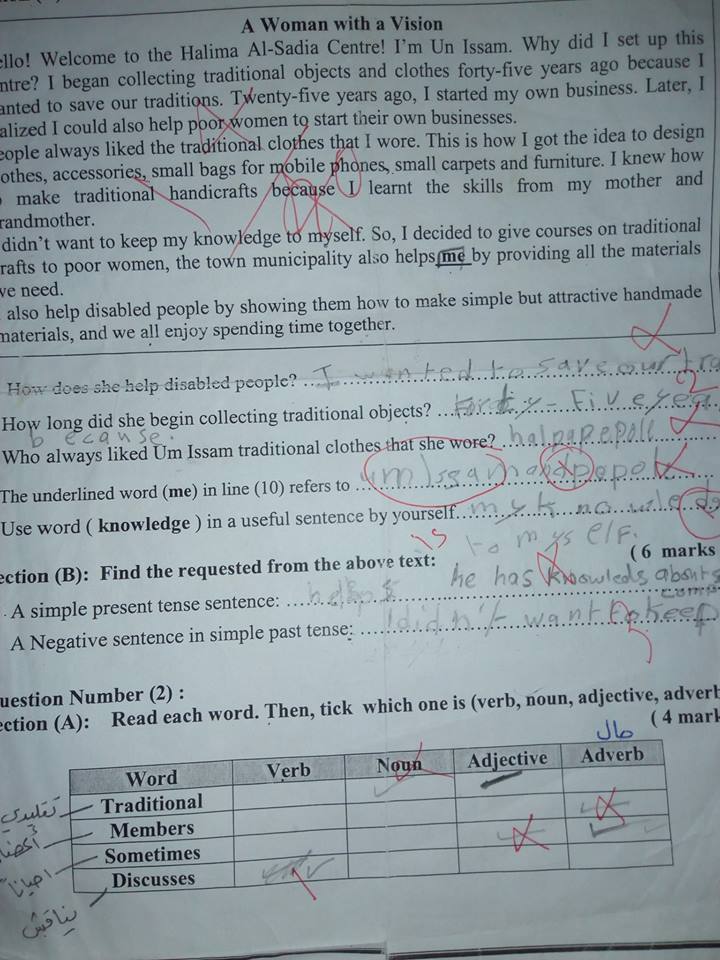 A Woman with a Vision
ello! Welcome to the Halima Al-Sadia Centre! I'm Un Issam. Why did I set up this
ntre? I began collecting traditional objects and clothes forty-five years ago because I
anted to save our traditions. Twenty-five years ago, I started my own business. Later, I
alized I could also help poor women to start their own businesses.
eople always liked the traditional clothes that I wore. This is how I got the idea to design
othes, accessories, small bags for mobile phones, small carpets and furniture. I knew how
o make traditional handicrafts because I learnt the skills from my mother and
randmother.
didn't want to keep my knowledge to myself. So, I decided to give courses on traditional
rafts to poor women, the town municipality also helps me by providing all the materials
we need.
also help disabled people by showing them how to make simple but attractive handmade
materials, and we all enjoy spending time together.
How does she help disabled people? I wanted to save our tra
How long did she begin collecting traditional objects? Forty-Five yea
because.
Who always liked Um Issam traditional clothes that she wore?
The underlined word (me) in line (10) refers to
Use word ( knowledge ) in a useful sentence by yourself my
to myself.
ection (B): Find the requested from the above text: ( 6 marks
A simple present tense sentence: he has
A Negative sentence in simple past tense: I didn't want to keep
uestion Number (2) :
ection (A): Read each word. Then, tick which one is (verb, noun, adjective, adverb
( 4 mark
حال
Word Verb Noun Adjective Adverb
تقليدي Traditional
أعضاء Members
احيانا Sometimes
يناقش Discusses